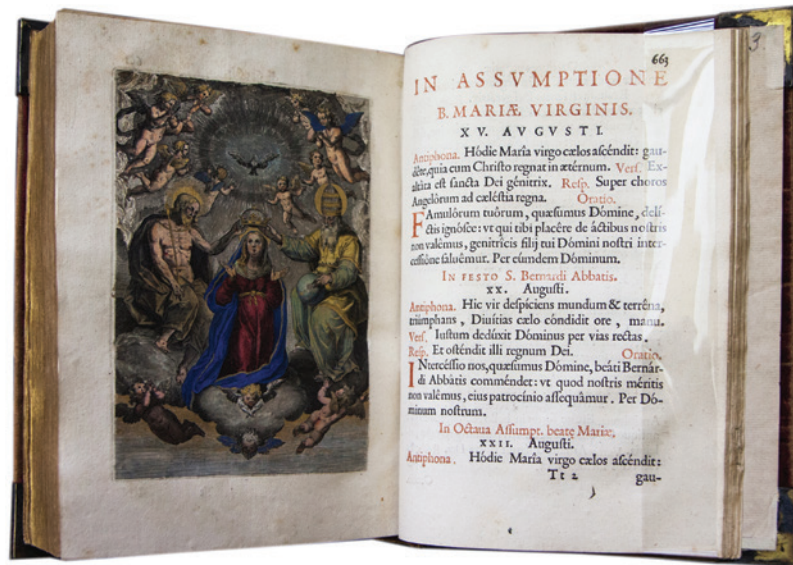 663
3.
IN ASSVMPTIONE
B. MARIÆ VIRGINIS.
XV. AVGVSTI.
Antiphona. Hódie María virgo cælos ascéndit: gau-
déte, quia cum Christo regnat in ætérnum. Vers. Ex-
altáta est sancta Dei génitrix. Resp. Super choros
Angelórum ad cæléstia regna. Oratio.
FAmulórum tuórum, quæsumus Dómine, delí-
ctis ignósce: vt qui tibi placére de áctibus nostris
non valémus, genitrícis filij tui Dómini nostri inter-
cessióne saluémur. Per eúmdem Dóminum.
IN FESTO S. Bernardi Abbatis.
XX. Augusti.
Antiphona. Hic vir despíciens mundum & terréna,
triúmphans, Diuítias cælo cóndidit ore, manu.
Vers. Iustum dedúxit Dóminus per vias rectas.
Resp. Et osténdit illi regnum Dei. Oratio.
INtercéssio nos, quæsumus Dómine, beáti Bernár-
di Abbátis comméndet: vt quod nostris méritis
non valémus, eius patrocínio assequámur. Per Dó-
minum nostrum.
In Octaua Assumpt. beatę Mariæ,
XXII. Augusti.
Antiphona. Hódie María virgo cælos ascéndit:
Tt 2 gau-